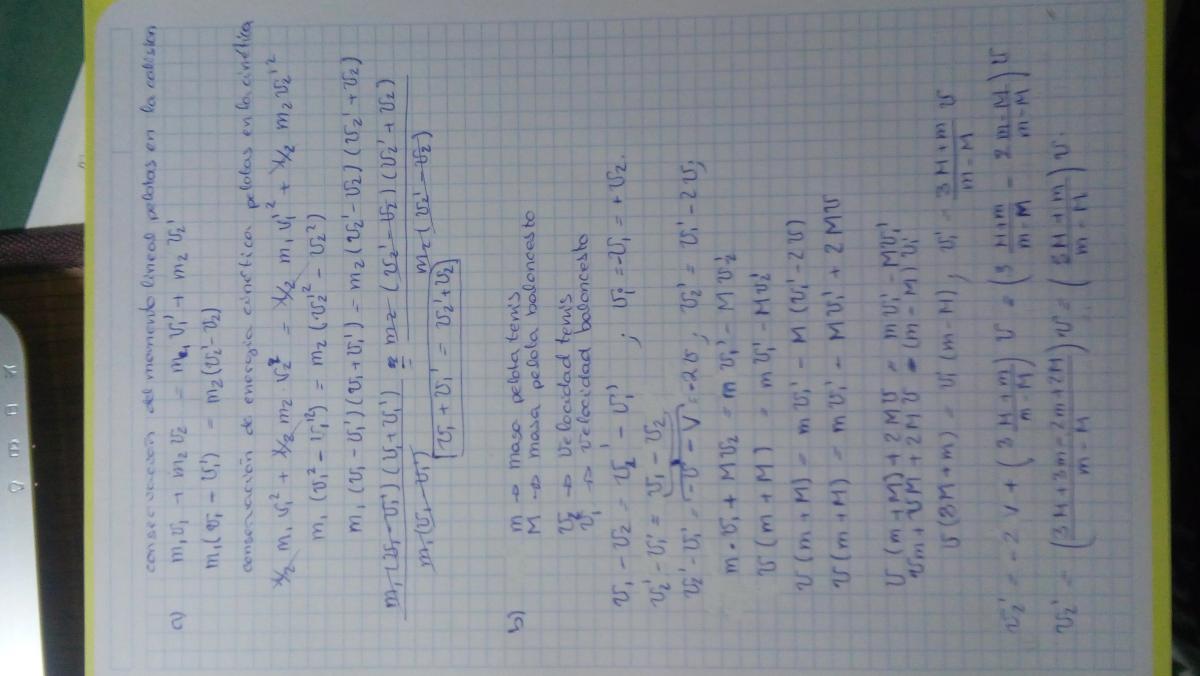 conservación del momento lineal pelotas en la colisión
a) m₁v₁ + m₂v₂ = m₁v₁' + m₂v₂'
m₁(v₁ - v₁') = m₂(v₂' - v₂)
conservación de energía cinética pelotas en la cinética
1/2 m₁v₁² + 1/2 m₂v₂² = 1/2 m₁v₁'² + 1/2 m₂v₂'²
m₁(v₁² - v₁'²) = m₂(v₂'² - v₂²)
m₁(v₁ - v₁')(v₁ + v₁') = m₂(v₂' - v₂)(v₂' + v₂)
m₁(v₁ - v₁')(v₁ + v₁') = m₂(v₂' - v₂)(v₂' + v₂)
m₁(v₁ - v₁') m₂(v₂' - v₂)
v₁ + v₁' = v₂' + v₂
b) m → masa pelota tenis
M → masa pelota baloncesto
v₂ → velocidad tenis
v₁ → velocidad baloncesto
v₁ - v₂ = v₂' - v₁' ; v₁ = -v₁ = + v₂.
v₂' - v₁' = v₁ - v₂
v₂' - v₁' = -v - v = -2v ; v₂' = v₁' - 2v;
m · v₁ + Mv₂ = m v₁' - Mv₂'
v(m + M) = m v₁' - Mv₂'
v(m + M) = m v₁' - M(v₁' - 2v)
v(m + M) = m v₁' - Mv₁' + 2Mv
v(m + M) + 2Mv = mv₁' - Mv₁'
vm + vM + 2Mv = (m - M)v₁'
v(3M + m) = v₁'(m - M) ; v₁' = 3M + m / m - M v
v₂' = -2v + (3 M + m / m - M) v = (3 M + m / m - M - 2 m - M / m - M) v
v₂' = (3M + 3m - 2m + 2M / m - M) v = (3M + m / m - M) v.